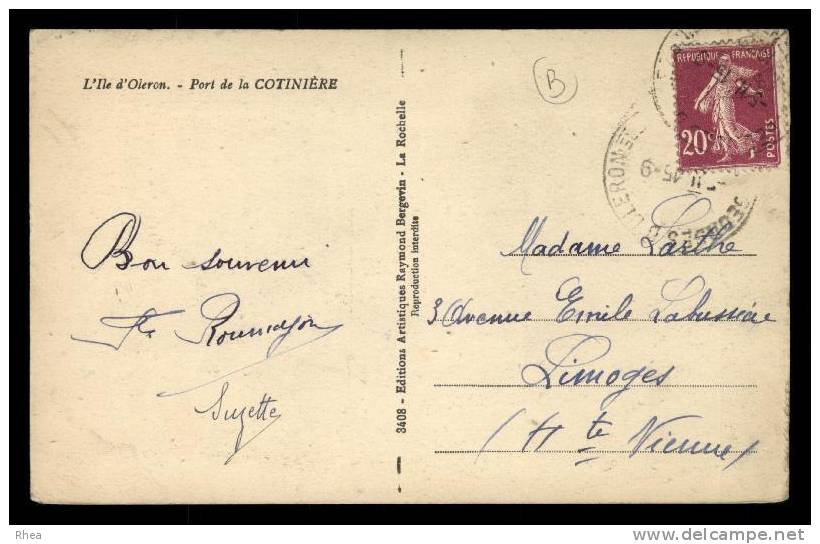 L'Ile d'Oleron. - Port de la COTINIÈRE
Bon souvenir
Suzette
3408 - Editions Artistiques Raymond Bergevin - La Rochelle
Reproduction interdite
B
REPUBLIQUE FRANÇAISE
20c
POSTES
Madame Larthe
3 Avenue Emile Labussière
Limoges
(Hte Vienne)
Rhea
www.delcampe.net